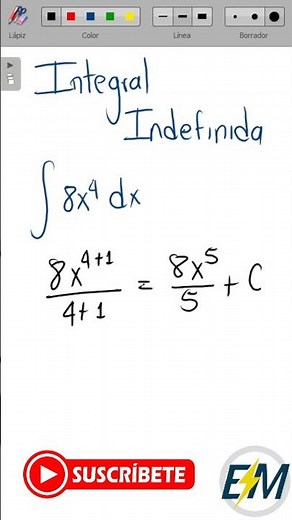 Lápiz Color Línea Borrador
Integral
Indefinida
∫ 8x⁴ dx
8x⁴⁺¹/4+1 = 8x⁵/5 + C
SUSCRÍBETE
EM